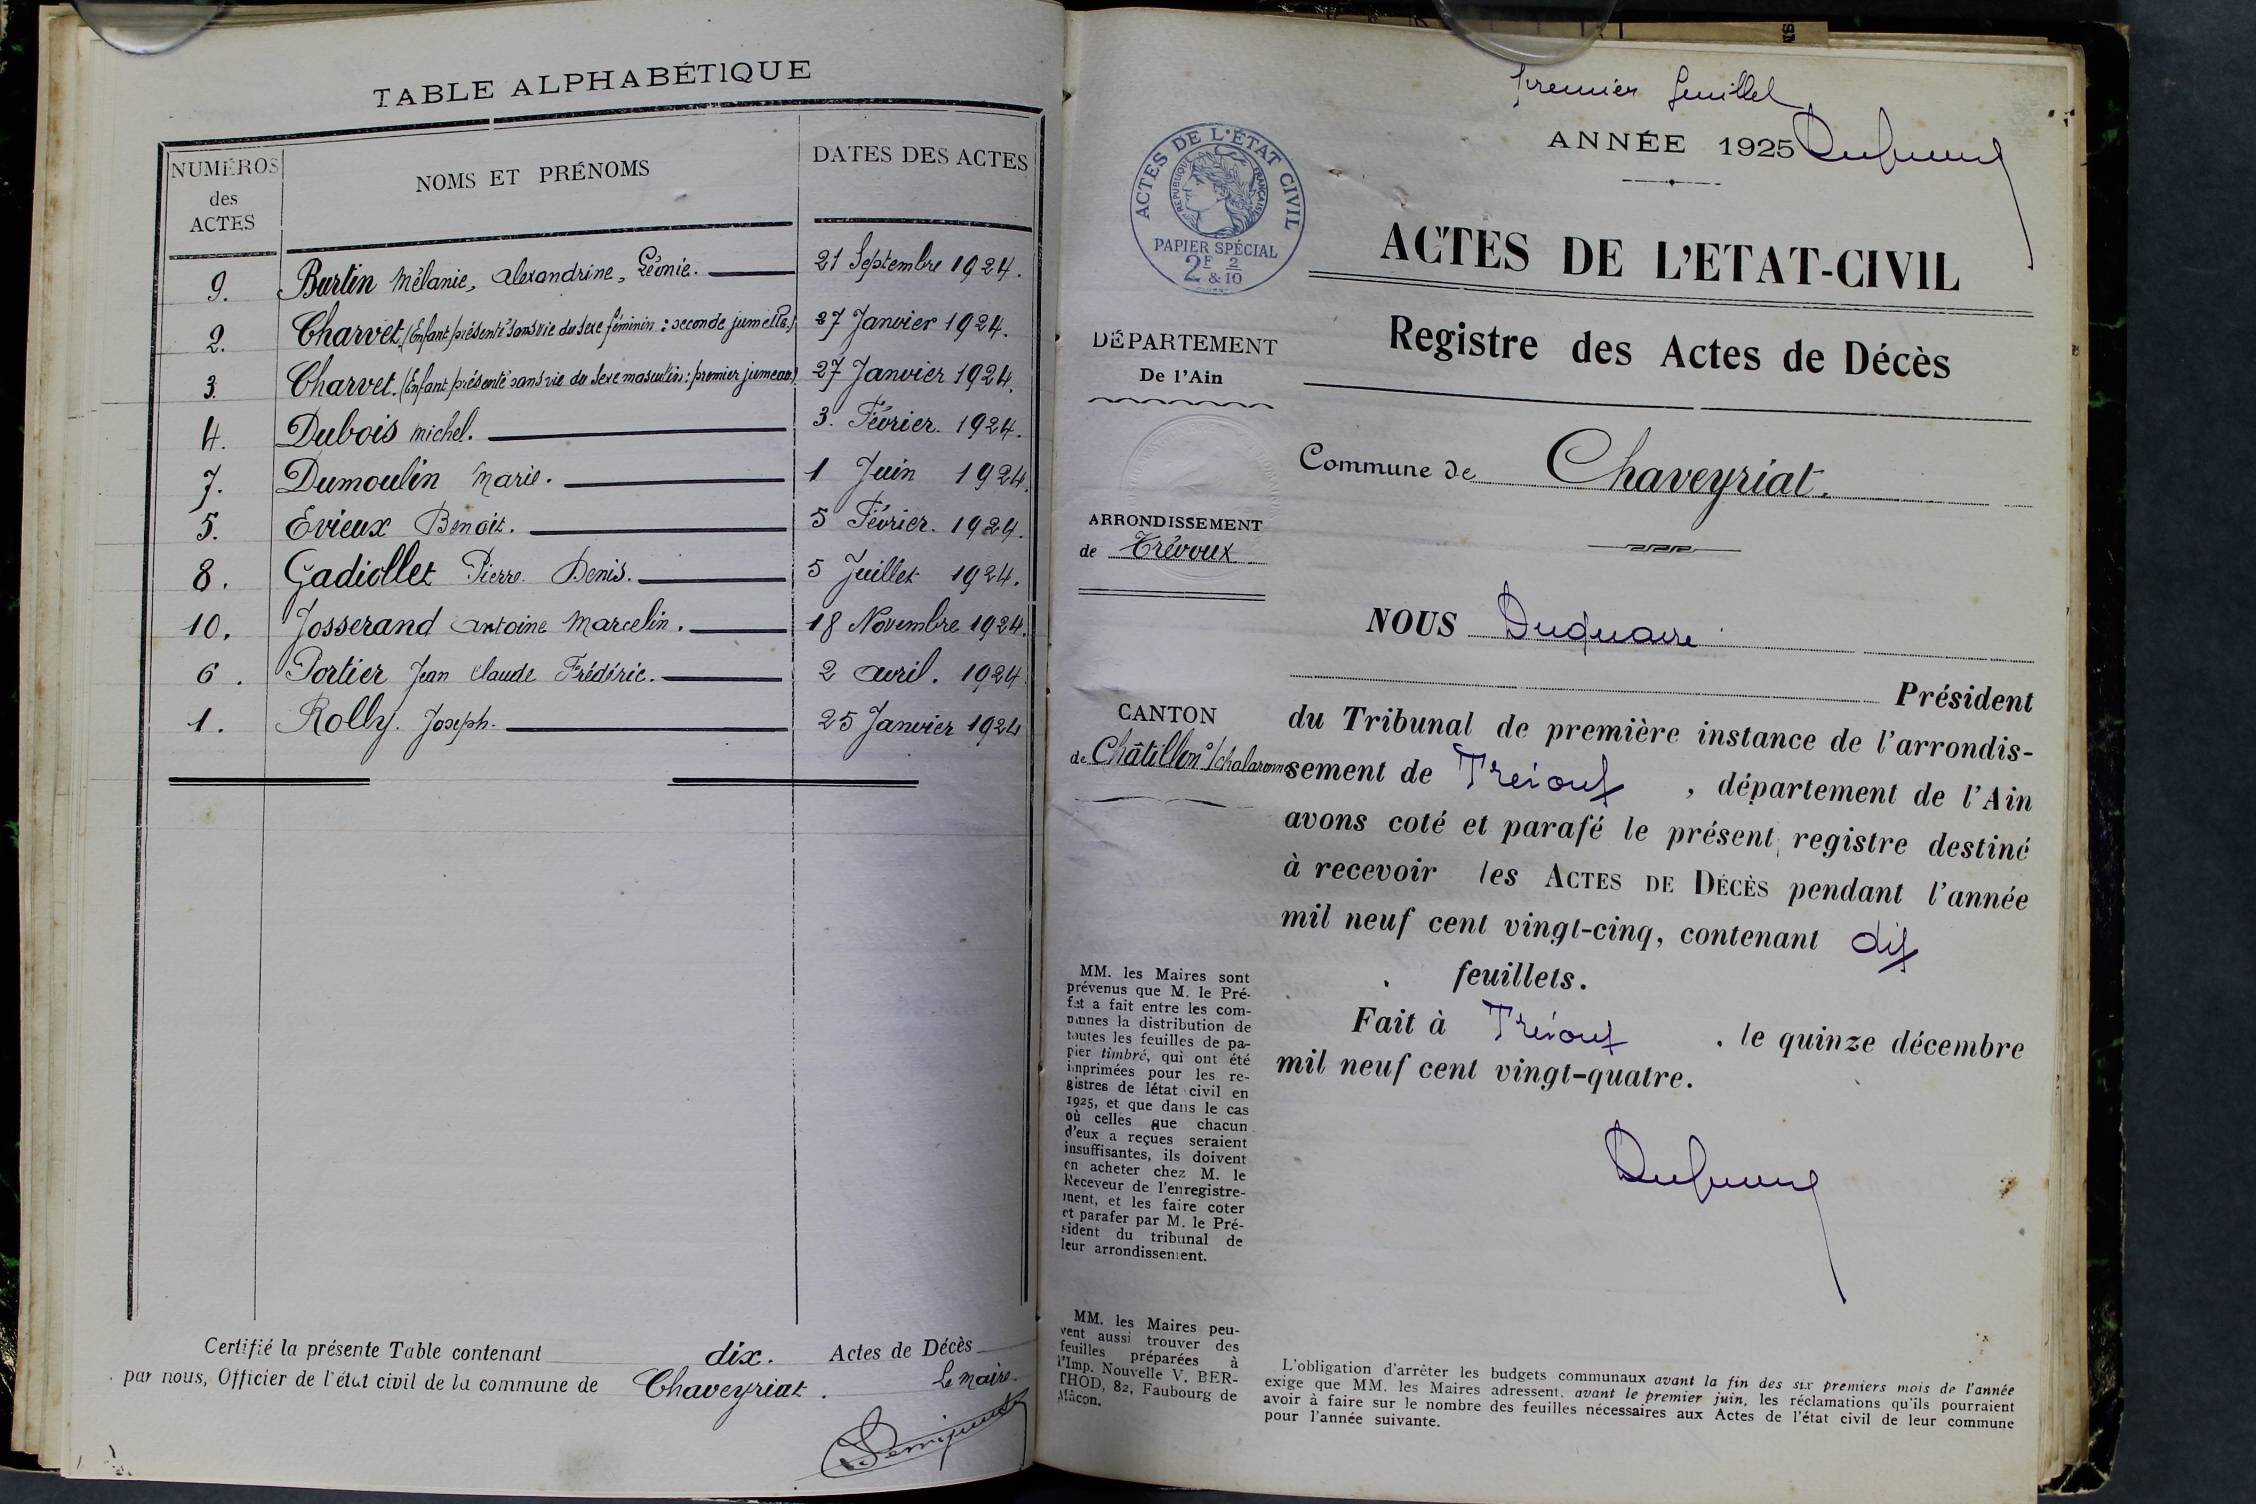 TABLE ALPHABÉTIQUE
NUMÉROS des ACTES NOMS ET PRÉNOMS DATES DES ACTES
9. Burtin Mélanie, Alexandrine, Léonie. 21 Septembre 1924.
2. Charvet (Enfant présenté sans vie du sexe féminin : seconde jumelle.) 27 Janvier 1924.
3. Charvet. (Enfant présenté sans vie du sexe masculin : premier jumeau) 27 Janvier 1924.
4. Dubois Michel. 3. Février. 1924.
7. Dumoulin Marie. 1 Juin 1924.
5. Evieux Benoit. 5 Février. 1924.
8. Gadiollet Pierre Denis. 5 Juillet 1924.
10. Josserand Antoine Marcelin. 18 Novembre 1924.
6. Portier Jean Claude Frédéric. 2 Avril. 1924
1. Rolly. Joseph. 25 Janvier 1924
Certifié la présente Table contenant dix. Actes de Décès
par nous, Officier de l'état civil de la commune de Chaveyriat.
Le Maire.
premier feuillet
ANNÉE 1925
ACTES DE L'ÉTAT CIVIL
RÉPUBLIQUE FRANÇAISE
PAPIER SPÉCIAL
2F & 2/10
ACTES DE L'ETAT-CIVIL
Registre des Actes de Décès
DÉPARTEMENT
De l'Ain
Commune de Chaveyriat.
ARRONDISSEMENT
de Trévoux
NOUS Duquaire
Président
CANTON
de Châtillon s/chalaronne
du Tribunal de première instance de l'arrondis-
sement de Trévoux, département de l'Ain
avons coté et parafé le présent registre destiné
à recevoir les ACTES DE DÉCÈS pendant l'année
mil neuf cent vingt-cinq, contenant dix
feuillets.
Fait à Trévoux, le quinze décembre
mil neuf cent vingt-quatre.
MM. les Maires sont
prévenus que M. le Pré-
fet a fait entre les com-
munes la distribution de
toutes les feuilles de pa-
pier timbré, qui ont été
imprimées pour les re-
gistres de létat civil en
1925, et que dans le cas
où celles que chacun
d'eux a reçues seraient
insuffisantes, ils doivent
en acheter chez M. le
Receveur de l'enregistre-
ment, et les faire coter
et parafer par M. le Pré-
sident du tribunal de
leur arrondissement.
MM. les Maires peu-
vent aussi trouver des
feuilles préparées à
l'Imp. Nouvelle V. BER-
THOD, 82, Faubourg de
Mâcon.
L'obligation d'arrêter les budgets communaux avant la fin des six premiers mois de l'année
exige que MM. les Maires adressent, avant le premier juin, les réclamations qu'ils pourraient
avoir à faire sur le nombre des feuilles nécessaires aux Actes de l'état civil de leur commune
pour l'année suivante.